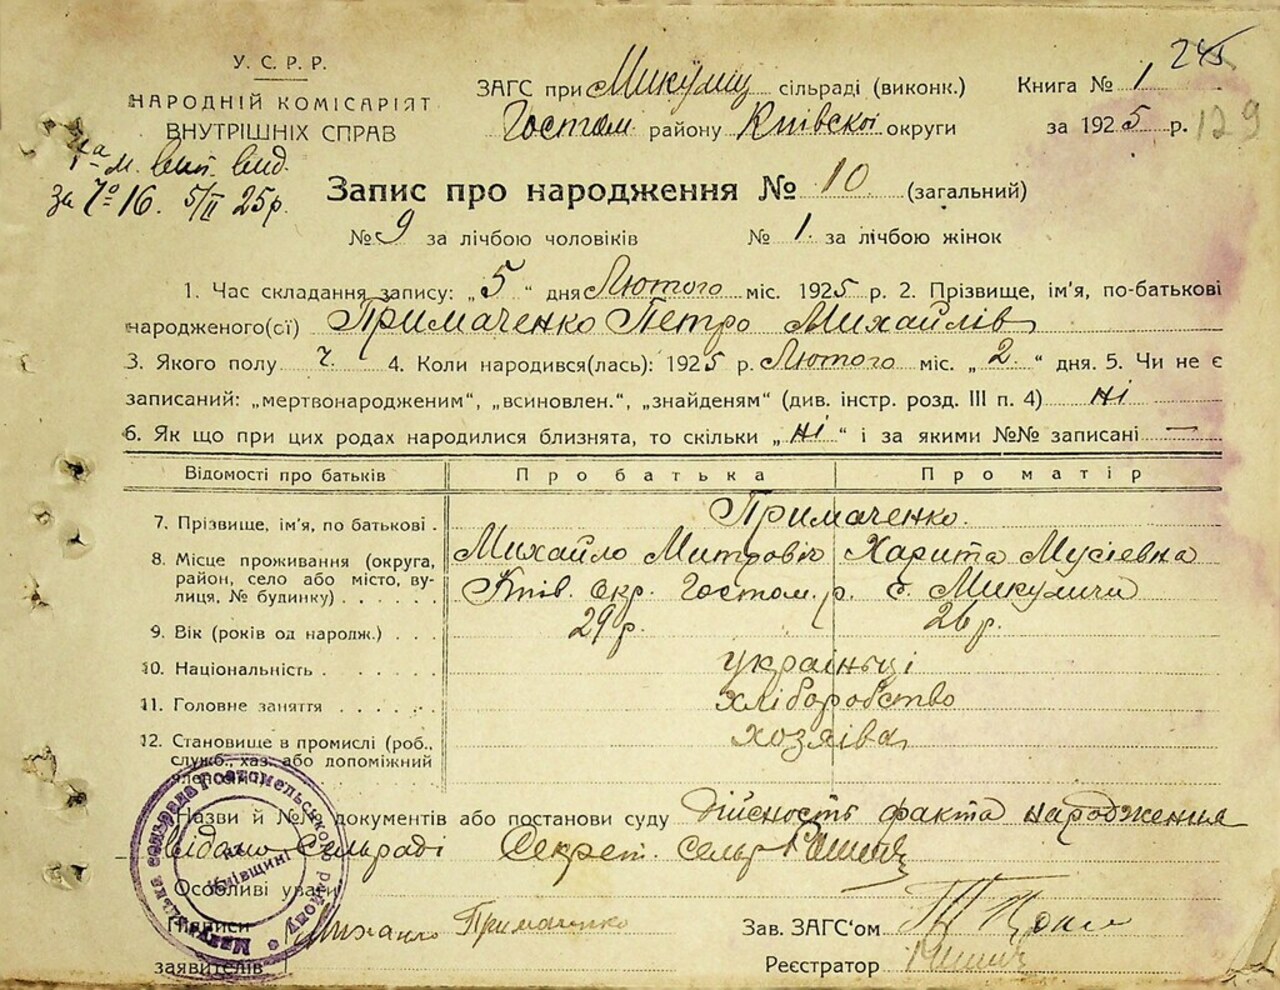 245
У. С. Р. Р.
НАРОДНІЙ КОМІСАРІЯТ
ВНУТРІШНІХ СПРАВ
ЗАГС при Микулиц сільраді (виконк.) Книга № 1
Гостом. району Київської округи за 1925 р. 129
за 7о 16. 5/II 25р.
Запис про народження № 10 (загальний)
№ 9 за лічбою чоловіків № 1. за лічбою жінок
1. Час складання запису: „5“ дня Лютого міс. 1925 р. 2. Прізвище, ім'я, по-батькові
народженого(ої) Примаченко Петро Михайлів
3. Якого полу ч. 4. Коли народився(лась): 1925 р. Лютого міс. „2.“ дня. 5. Чи не є
записаний: „мертвонародженим“, „всиновлен.“, „знайденям“ (див. інстр. розд. III п. 4) ні
6. Як що при цих родах народилися близнята, то скільки „ні“ і за якими №№ записані —
Відомості про батьків Про батька Про матір
7. Прізвище, ім'я, по батькові . Примаченко.
Михайло Митрович Харита Мусієвна
8. Місце проживання (округа,
район, село або місто, ву-
лиця, № будинку) . . . . . Київ. окр. Гостом. р. с. Микуличи
9. Вік (років од народж.) . . . 29 р. 26 р.
10. Національність . . . . . . українці
11. Головне заняття . . . . . хліборобство
12. Становище в промислі (роб., хозяіва
служб., хаз. або допоміжний
Назви й №№ документів або постанови суду Дійсность факта народження
відомо Сельраді Секрет. сельр
Особливі уваги
Підписи Михайло Примаченко Зав. ЗАГС'ом
заявителів Реєстратор